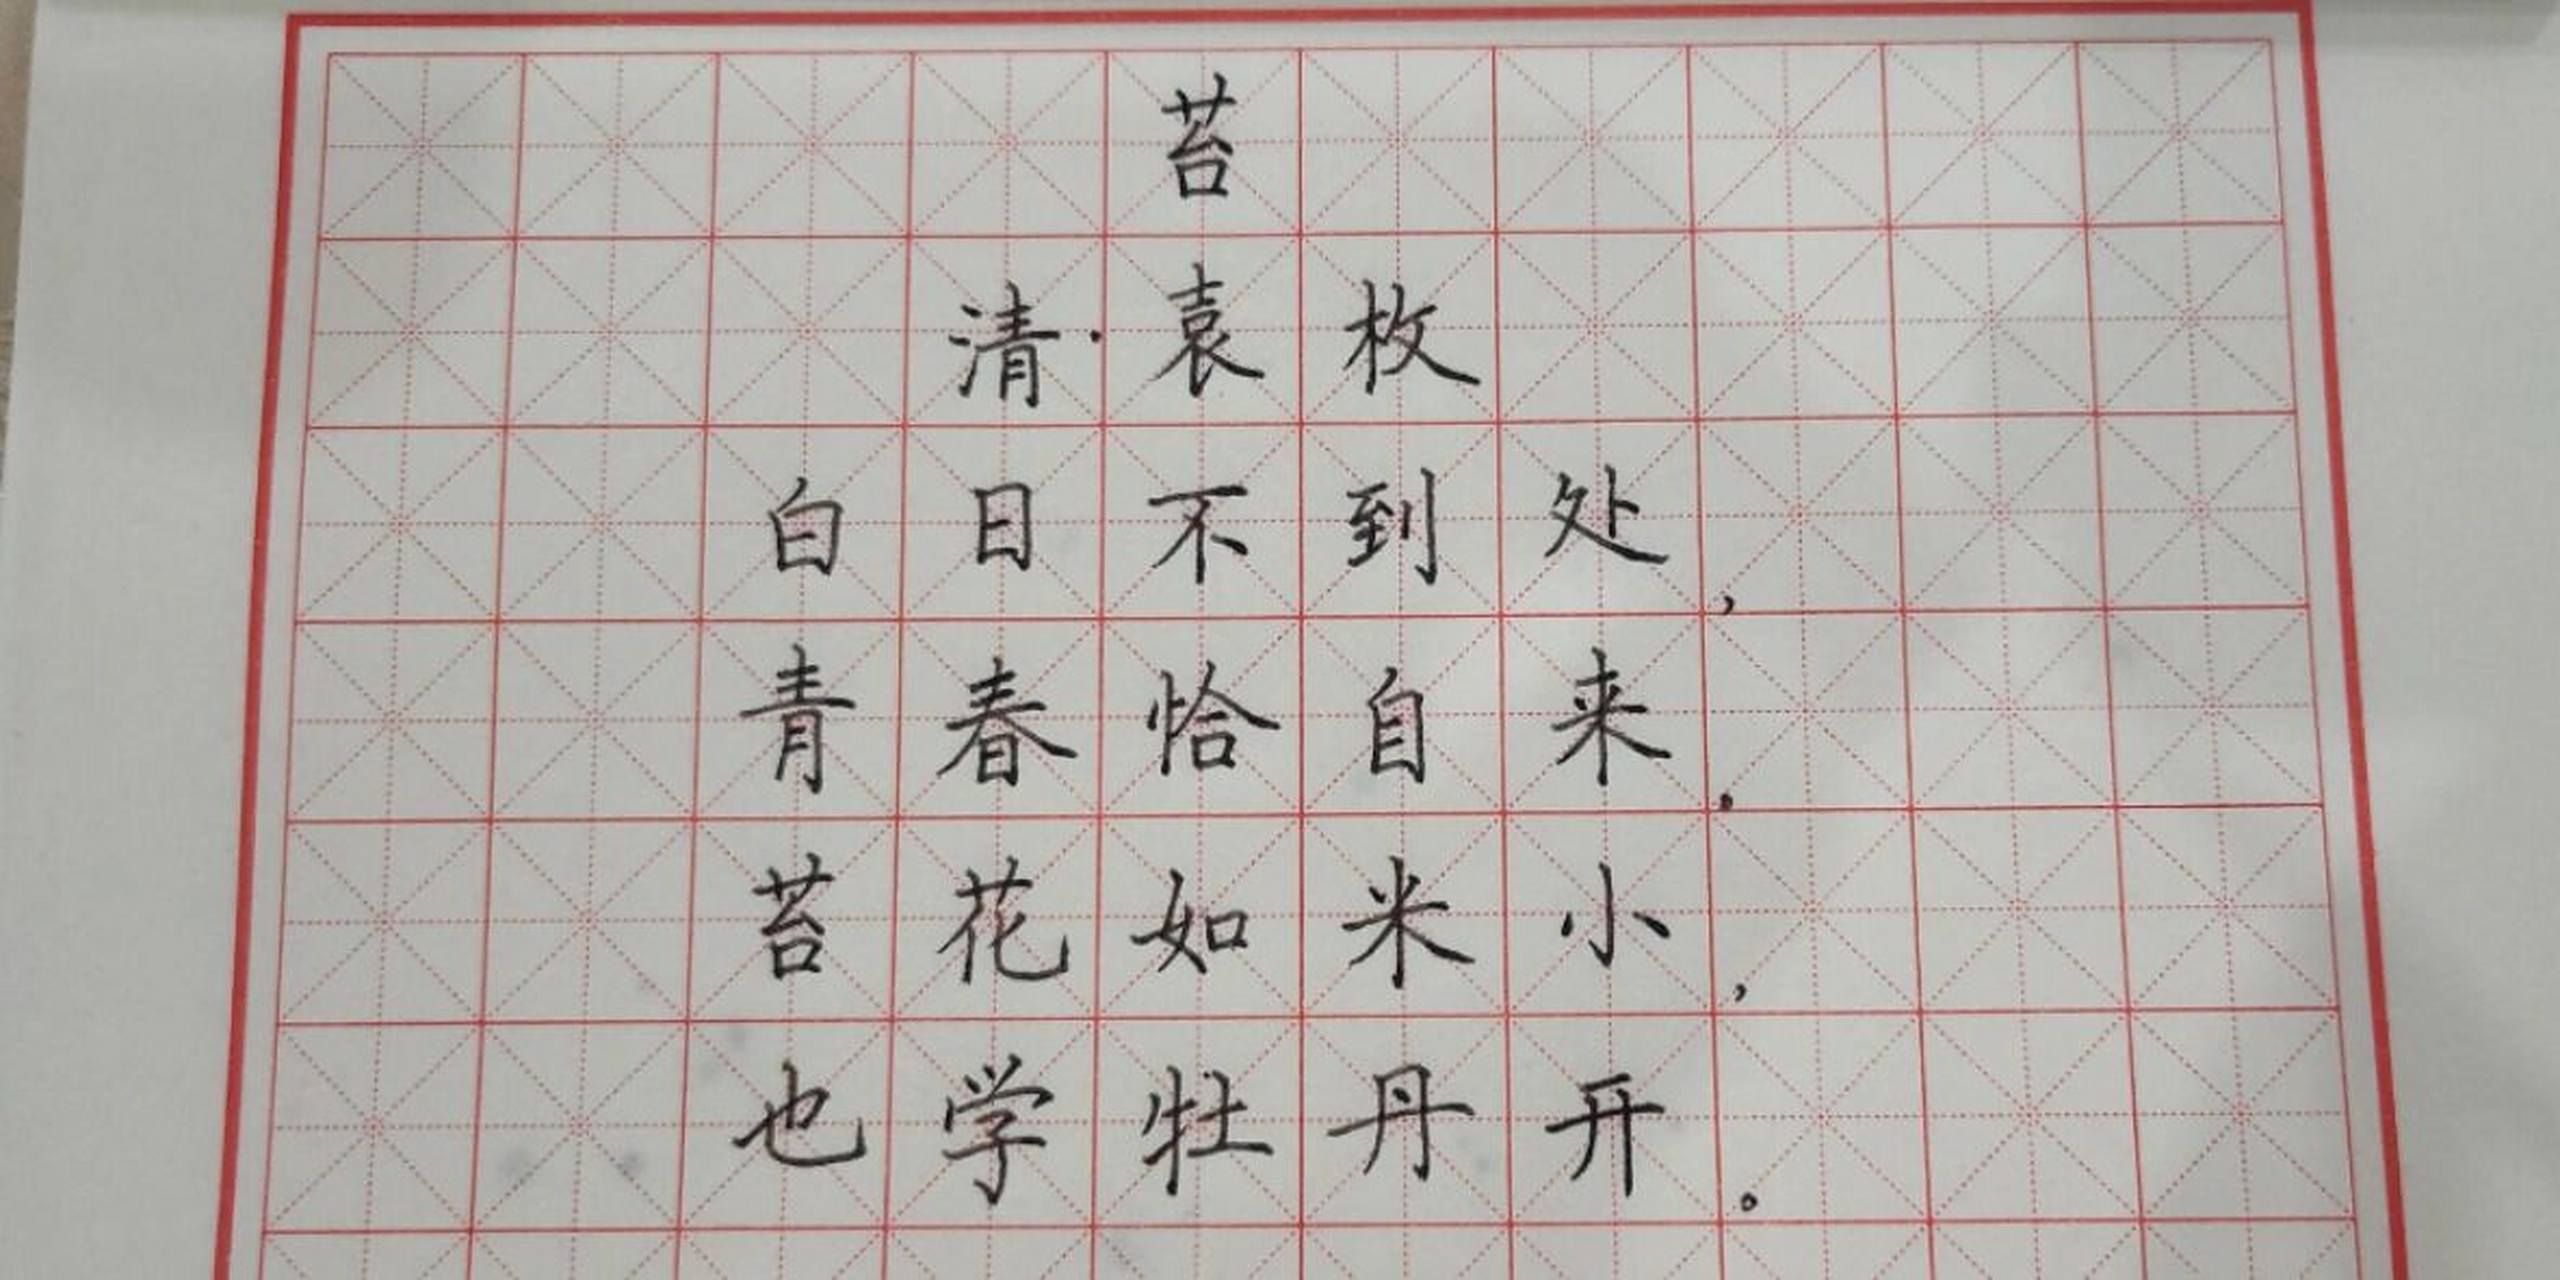 苔
清·袁枚
白日不到处，
青春恰自来。
苔花如米小，
也学牡丹开。